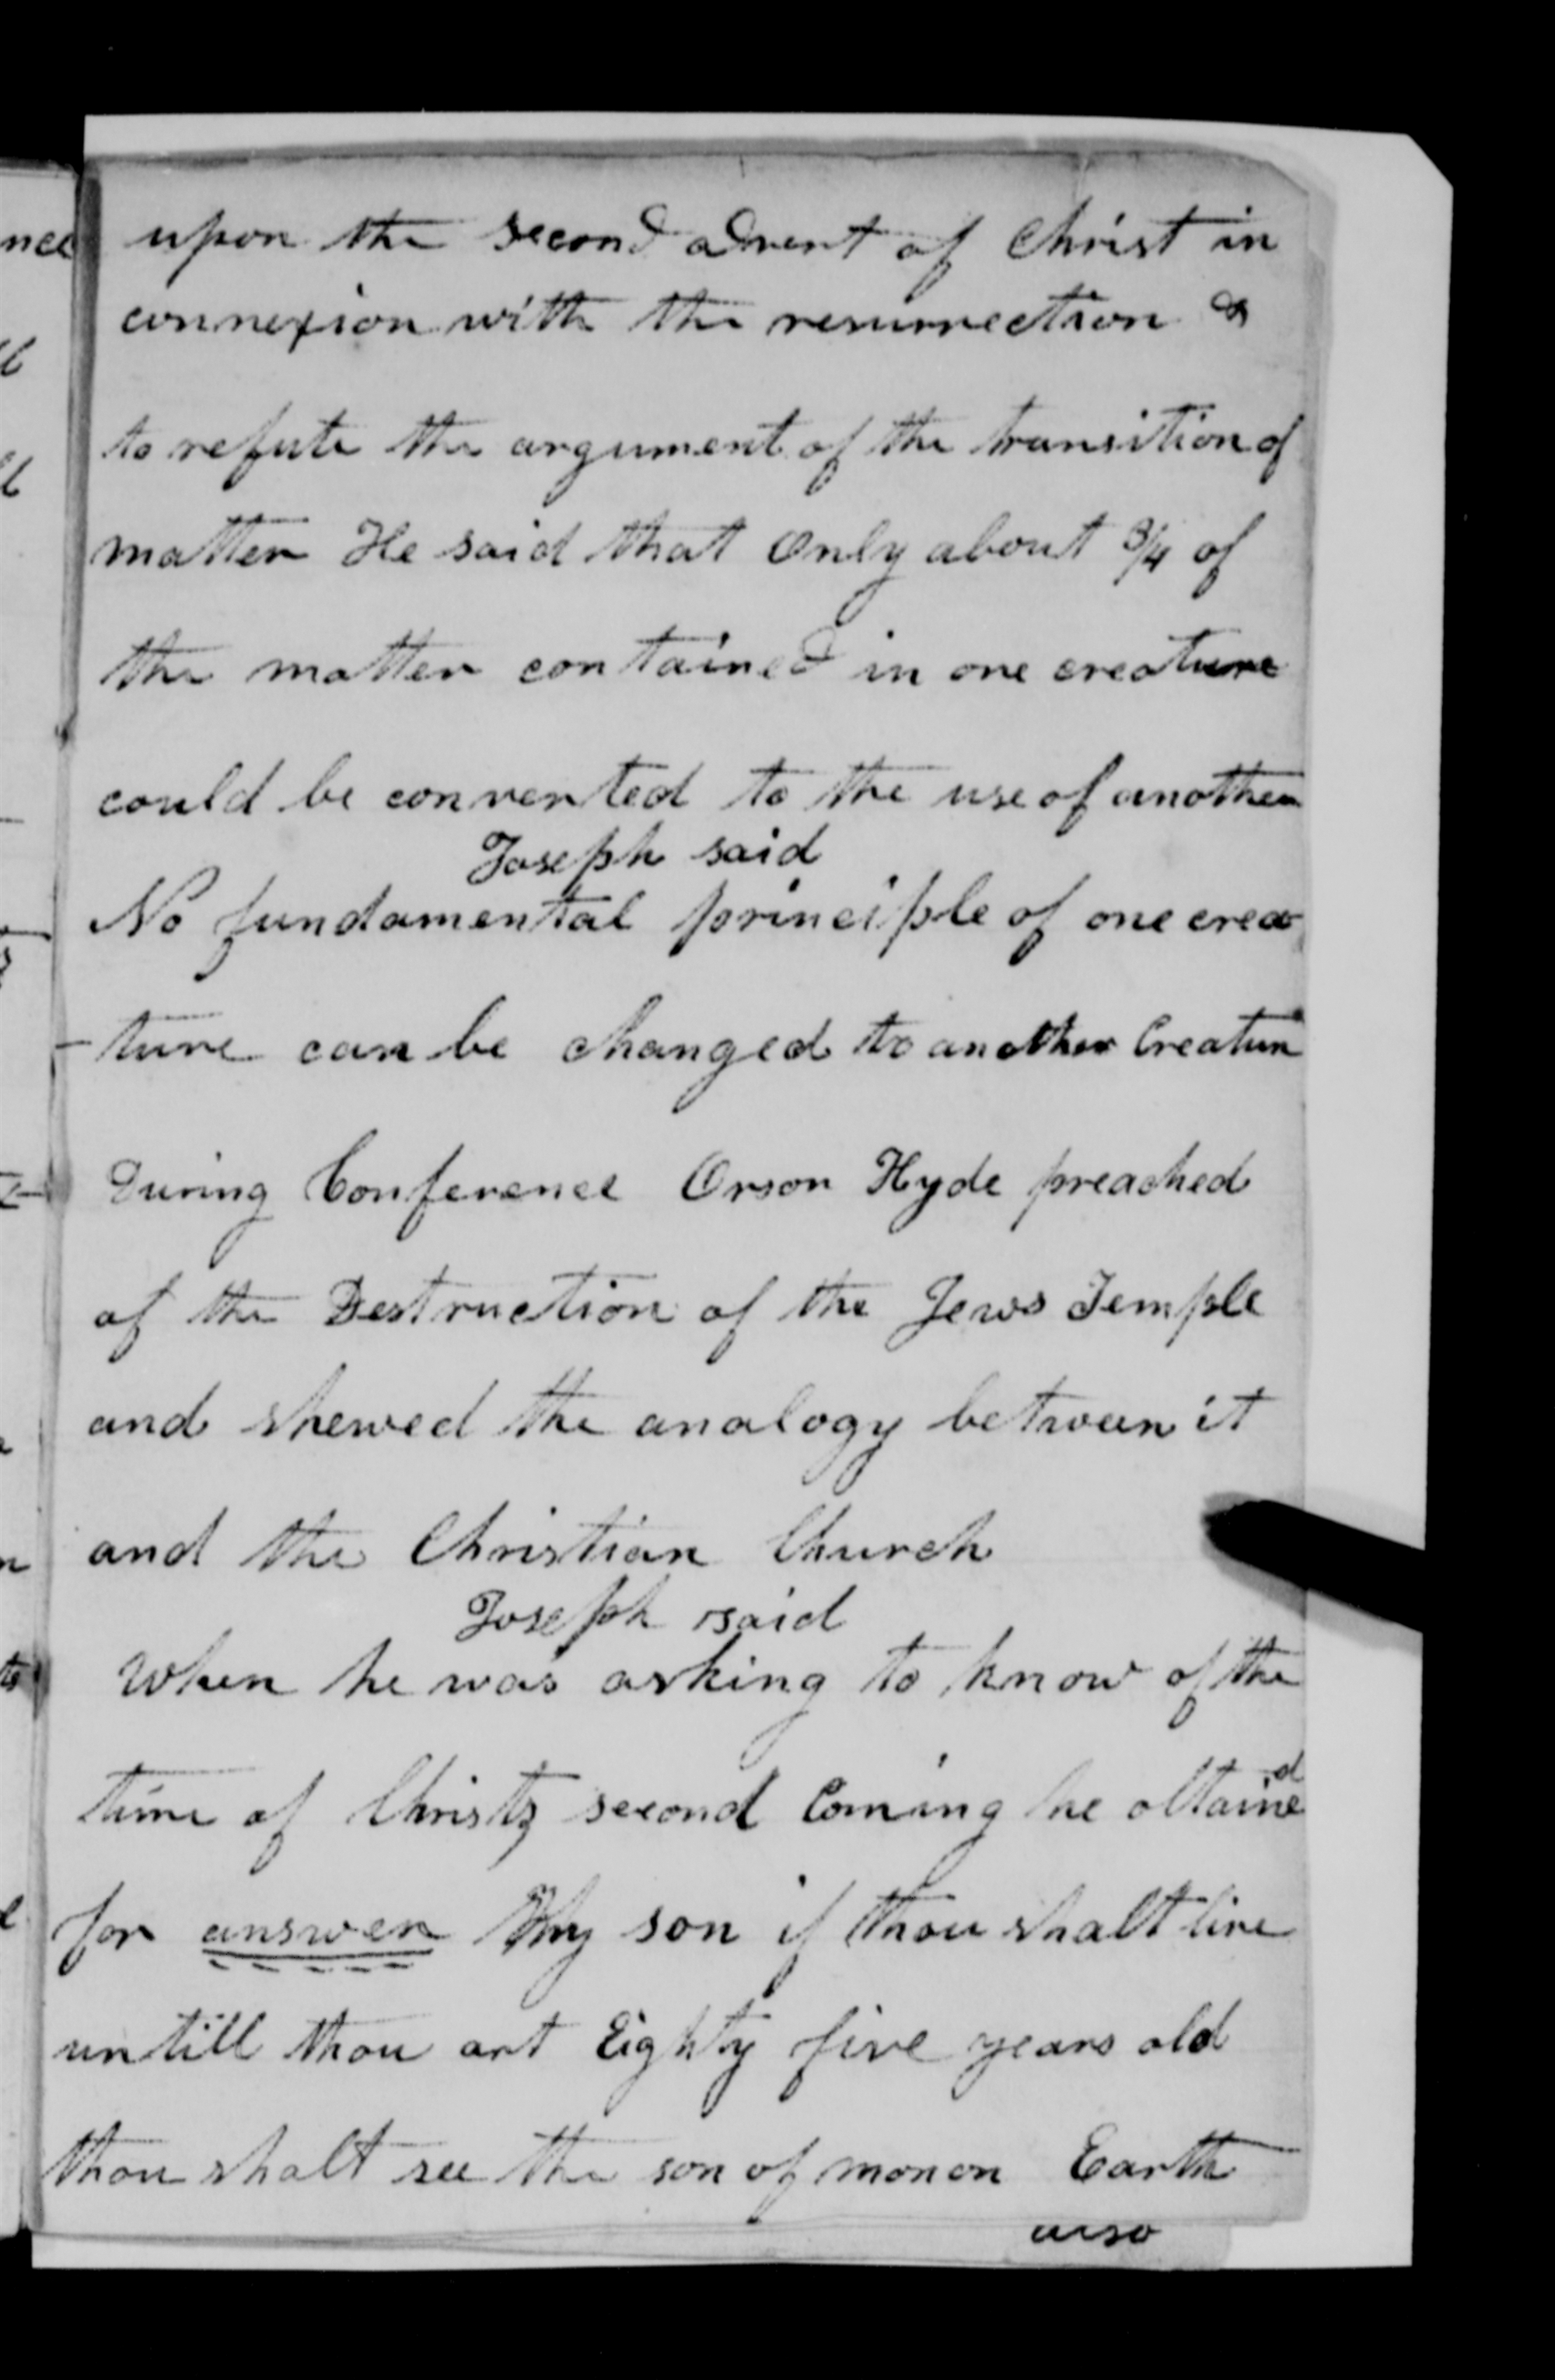 upon the second advent of Christ in
connexion with the resurrection &
to refute the argument of the transition of
matter He said that only about 3/4 of
the matter contained in one creature
could be converted to the use of another
Joseph said
No fundamental principle of one crea
-ture can be changed to another Creature
During Conference Orson Hyde preached
of the Destruction of the Jews Temple
and shewed the analogy between it
and the Christian Church
Joseph said
When he was asking to know of the
time of Christs second Coming he obtained
for answer My son if thou shalt live
untill thou art Eighty five years old
thou shalt see the son of man on Earth
also